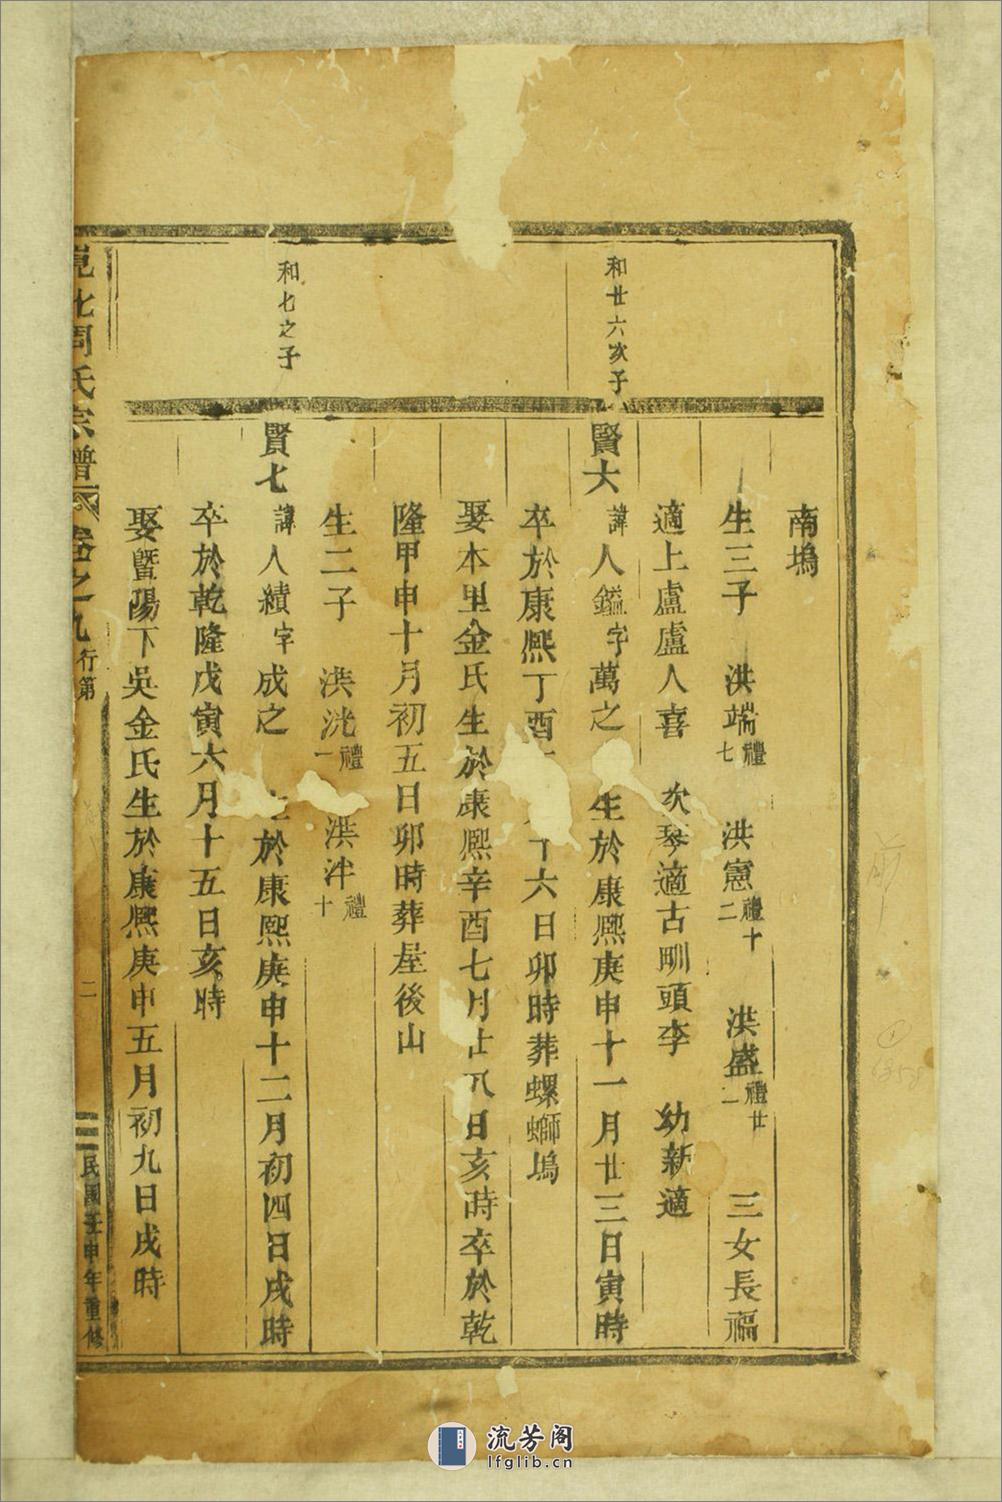 南塢
生三子 洪端禮七 洪憲禮十二 洪盛禮廿一 三女長福
適上盧盧人喜 次琴適古 頭李 幼新適
和廿六次子
賢六 諱人鎰字萬之 生於康熙庚申十一月廿三日寅時
卒於康熙丁酉 月十六日卯時葬螺螄塢
娶本里金氏生於康熙辛酉七月廿八日亥時卒於乾
隆甲申十月初五日卯時葬屋後山
生二子 洪洸禮一 洪泮禮十
和七之子
賢七 諱人績字成之 生於康熙庚申十二月初四日戌時
卒於乾隆戊寅六月十五日亥時
娶暨陽下吳金氏生於康熙庚申五月初九日戌時
北周氏宗譜 卷之九 行第 二 民國壬申年重修
流芳阁
lfglib.cn